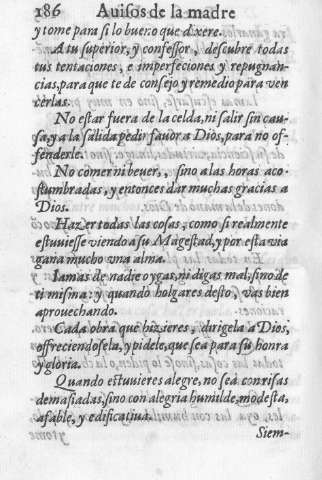 186 Auisos de la madre
y tome para si lo bueno que dixere.
A tu superior, y confessor, descubre todas
tus tentaciones, e imperfeciones y repugnan-
cias, para que te de consejo y remedio para ven
cerlas.
No estar fuera de la celda, ni salir sin cau-
sa, y a la salida pedir fauor a Dios, para no of-
fenderle.
No comer ni beuer, sino a las horas aco-
stumbradas, y entonces dar muchas gracias a
Dios.
Hazer todas las cosas, como si realmente
estuuiesse viendo a su Magestad, y por esta via
gana mucho vna alma.
Iamas de nadie oygas, ni digas mal, sino de
ti misma: y quando holgares desto, vas bien
aprouechando.
Cada obra que hizieres, dirigela a Dios,
offreciendosela, y pidele, que sea para su honra
y gloria.
Quando estuuieres alegre, no sea con risas
demasiadas, sino con alegria humilde, modesta,
afable, y edificatiua.
Siem-